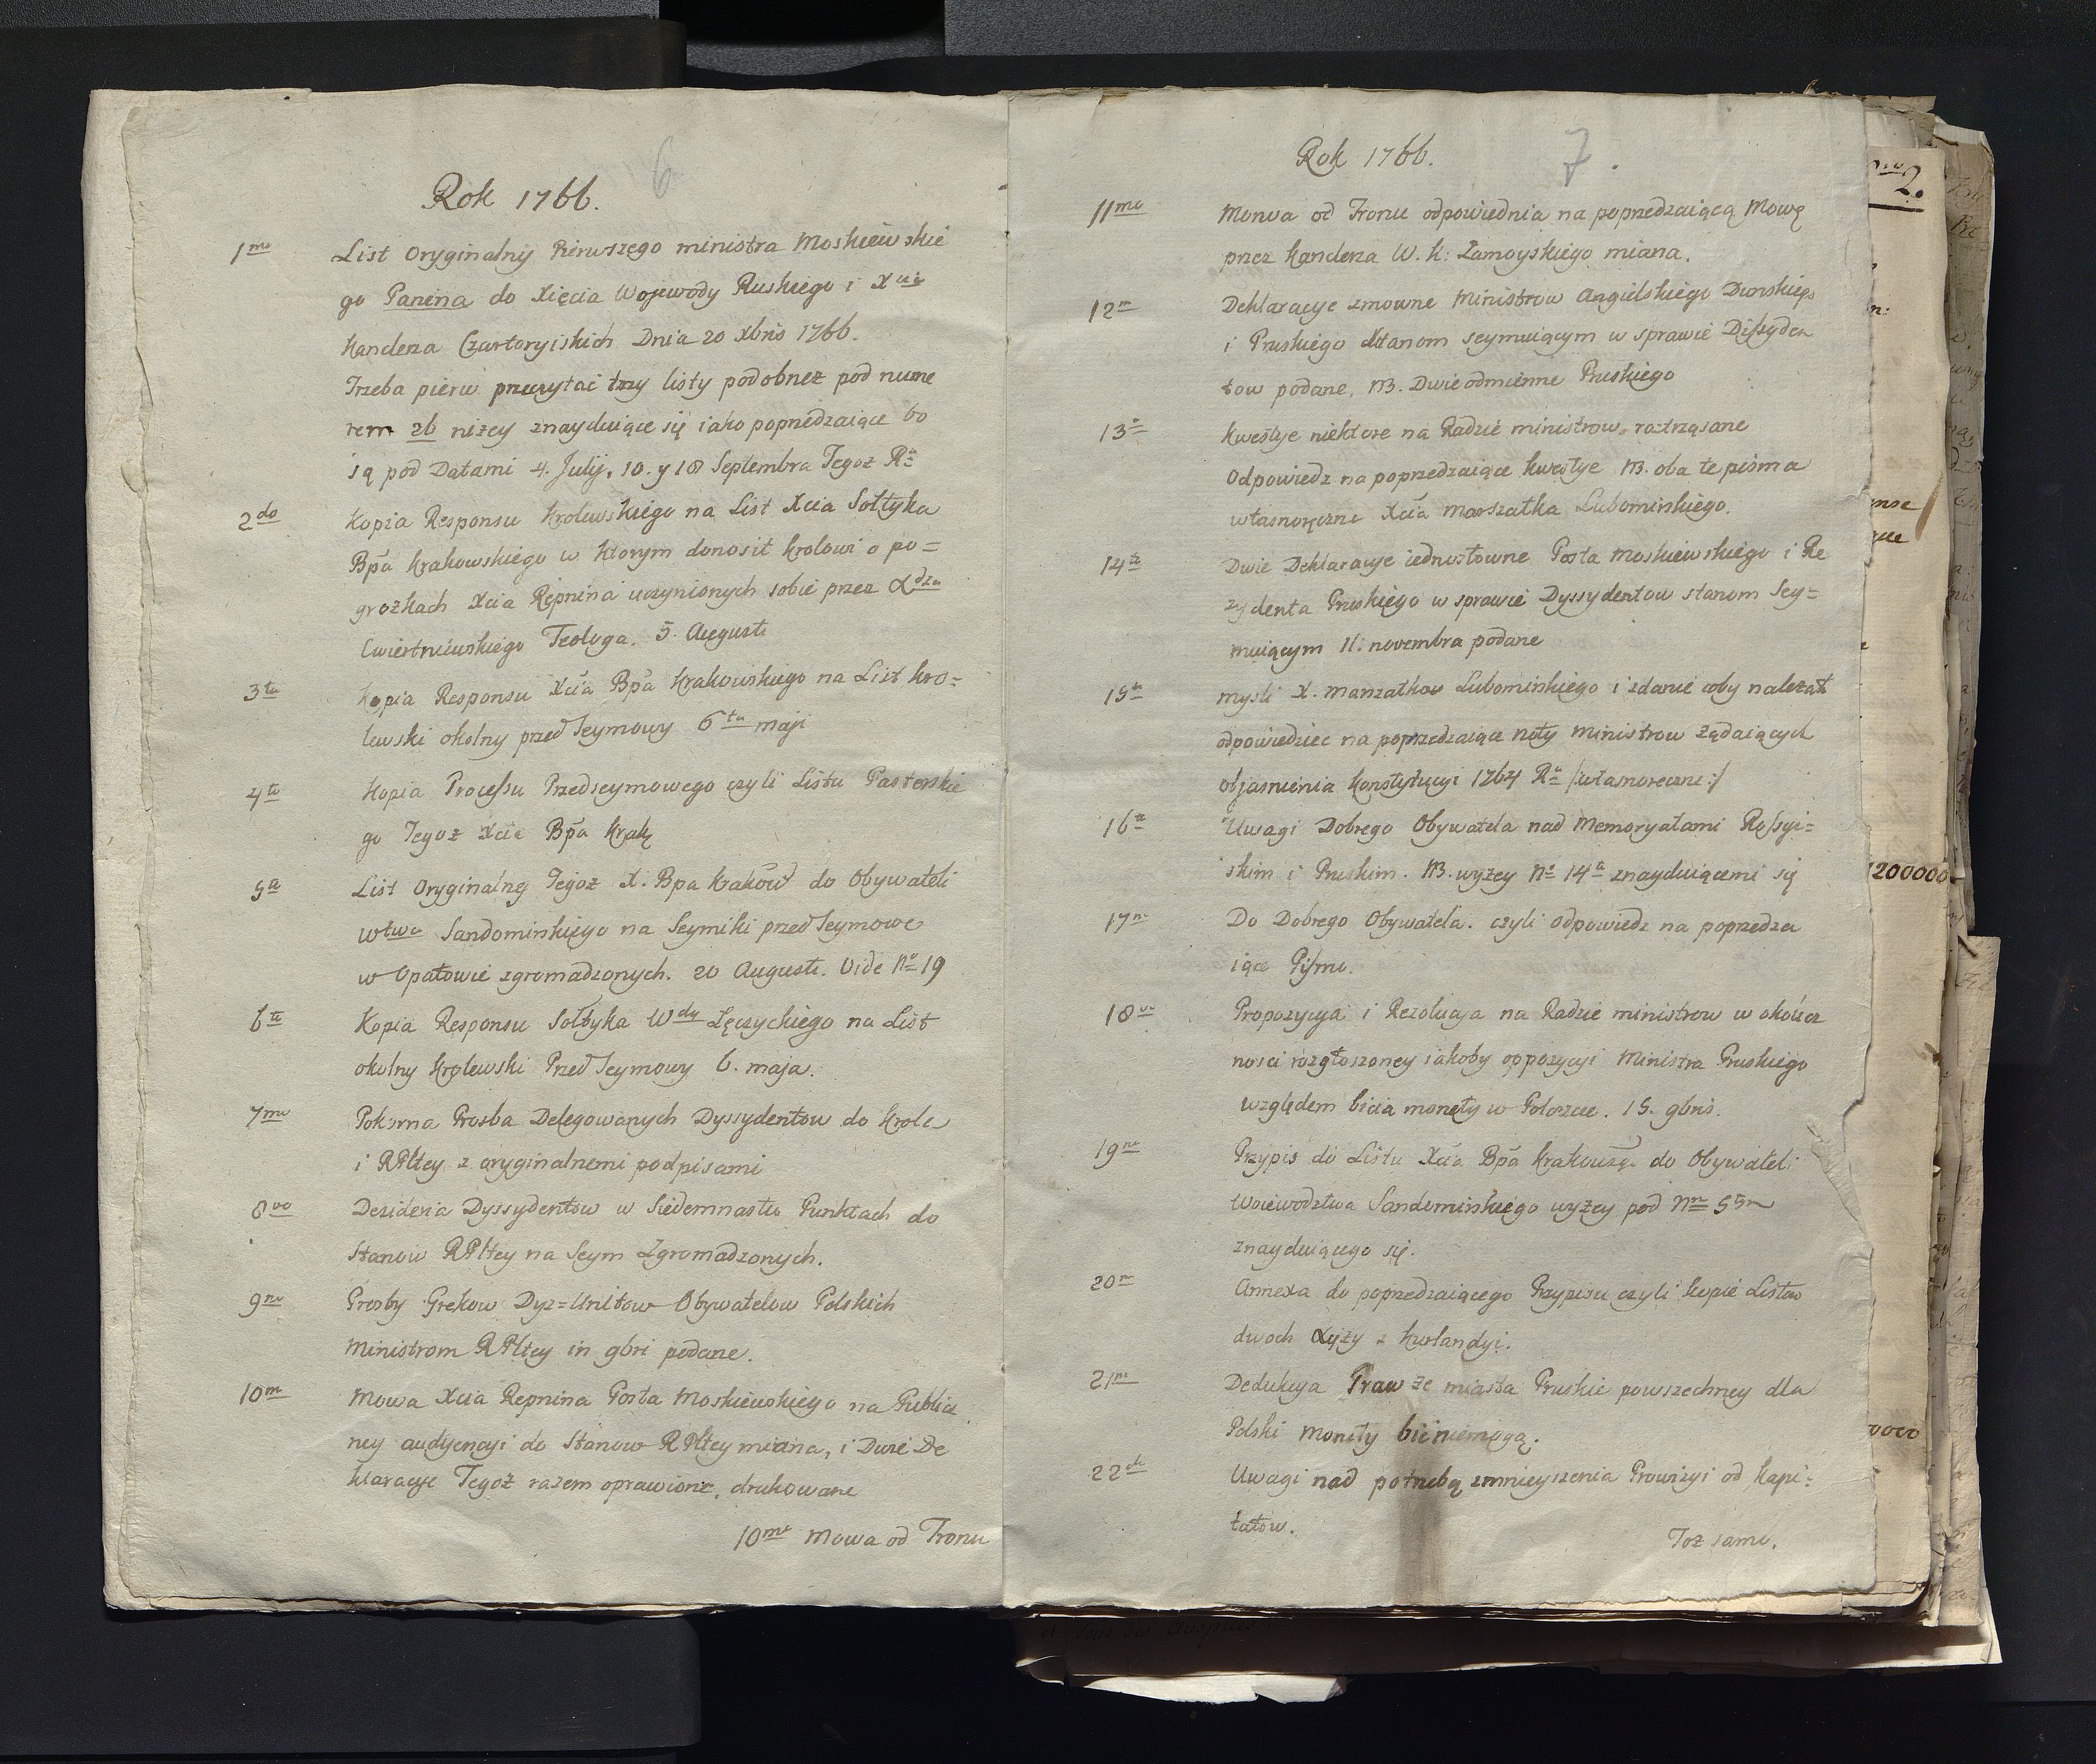 6
Rok 1766.
1mo List Oryginalny Pierwszego ministra Moskiewskie
go Panina do Xięcia Wojewody Ruskiego i Xcia
Kanclerza Czartoryiskich Dnia 20 Xbris 1766.
Trzeba pierw przeczytać trzy listy podobnez pod nume
rem 26 niżey znayduiące się iako poprzedzaiące bo
są pod Datami 4. Julij, 10. y 18 Septembra Tegoz Ru
2do Kopia Responsu Krolewskiego na List Xcia Sołtyka
Bpa Krakowskiego w ktorym donosił Krolowi o po=
grożkach Xcia Repnina uczynionych sobie przez Xdza
Cwiertniewskiego Teologa. 5. Augusti
3tio Kopia Responsu Xcia Bpa Krakowskiego na List Kro=
lewski okolny przed Seymowy 6ta maji
4to Kopia Processu Przedseymowego czyli Listu Pasterskie
go Tegoz Xcia Bpa Krakę
5to List Oryginalny Tegoz X. Bpa Krakow do Obywateli
wtwa Sandomirskiego na Seymiki przed Seymowe
w Opatowie zgromadzonych. 20 Augusti. Vide No 19
6to Kopia Responsu Sołtyka Wdy Łęczyckiego na List
okolny Krolewski Przed Seymowy 6. maja.
7mo Pokorna Prosba Delegowanych Dyssydentow do Krola
i RPltey z oryginalnemi podpisami
8vo Desideria Dyssydentow w Siedemnastu Punktach do
Stanow RPltey na Seym Zgromadzonych.
9no Prosby Grekow Dyz=Unitow Obywatelow Polskich
Ministrom RPltey in 9bri podane.
10mo Mowa Xcia Repnina Posła Moskiewskiego na Publicz
ney audyencyi do Stanow RPltey miana, i Dwie De
klaracye Tegoż razem oprawione, drukowane
10mo Mowa od Tronu
7.
Rok 1766.
11mo Mowa od Tronu odpowiednia na poprzedzaiącą Mowę
przez Kanclerza W. K: Zamoyskiego miana.
12o Deklaracye zmowne Ministrow Angielskiego Dunskiego
i Pruskiego Stanom seymuiącym w sprawie Dissyden
tow podane, NB. Dwie odmienne Pruskiego
13o Kwestye niektore na Radzie ministrow roztrząsane
Odpowiedz na poprzedzaiące kwestye NB. oba te pisma
własnoręczne Xcia Marszałka Lubomirskiego.
14to Dwie Deklaracye iednostowne Posła Moskiewskiego i Re
zydenta Pruskiego w sprawie Dyssydentow stanom Sey=
muiącym 11. novembra podane
15to mysli X. marszałkow Lubomirskiego i zdanie coby należat
odpowiedziec na poprzedzaiące noty Ministrow żądaiących
objasnienia Konstytucyi 1764 Ru /:własnoreczne:/
16to Uwagi Dobrego Obywatela nad Memoryałami Rossyi=
skim i Pruskim. NB. wyżey No 14to znayduiącemi się
17mo Do Dobrego Obywatela. czyli odpowiedz na poprzedza
iące Pismo.
18vo Propozycya i Rezolucya na Radzie ministrow w okolicz
nosci rozgłoszoney iakoby oppozycyi Ministra Pruskiego
względem bicia monety w Polszcze. 15. 9bris.
19no Przypis do Listu Xcia Bpa Krakowskgo do Obywateli
Woiewodztwa Sandomirskiego wyżey pod Nro 5to
znayduiącego się.
20mo Annexa do poprzedzaiącego Przypisu czyli kopie Listow
dwoch Xięży z Kurlandyi.
21mo Dedukcya Praw że miasta Pruskie powszechney dla
Polski Monety bić niemogą.
22do Uwagi nad potrzebą zmnieyszenia Prowizyi od kapi=
tałow.
Toz samo.
2.
200000